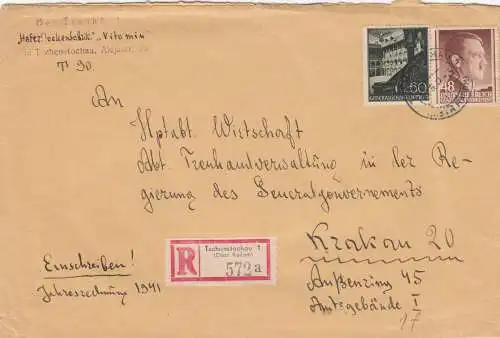 Der Treuhä
"Haferflockenfabrik" "Vitamin"
in Tschenstochau,
T 90.
60
GENERALGOUVERNEMENT
48
DEUTSCHES REICH
An
Hptabt. Wirtschaft
Abt. Treuhandverwaltung in der Re-
gierung des Generalgouvernements
Krakau 20
Außenring 45
Amtsgebäude I
17
R
Tschenstochau 1
(Distr. Radom)
572 a
Einschreiben!
Jahresrechnung 1941